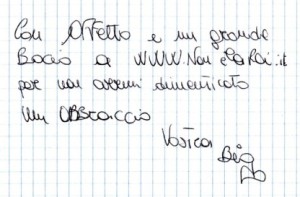 Con Affetto e un grande
Bacio a WWW.Non eLaRai.it
per non avermi dimenticato
Un Abbraccio
Vostra